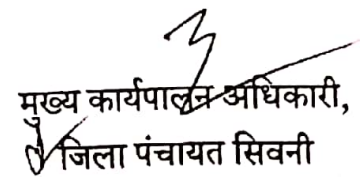 मुख्य कार्यपालन अधिकारी,
जिला पंचायत सिवनी